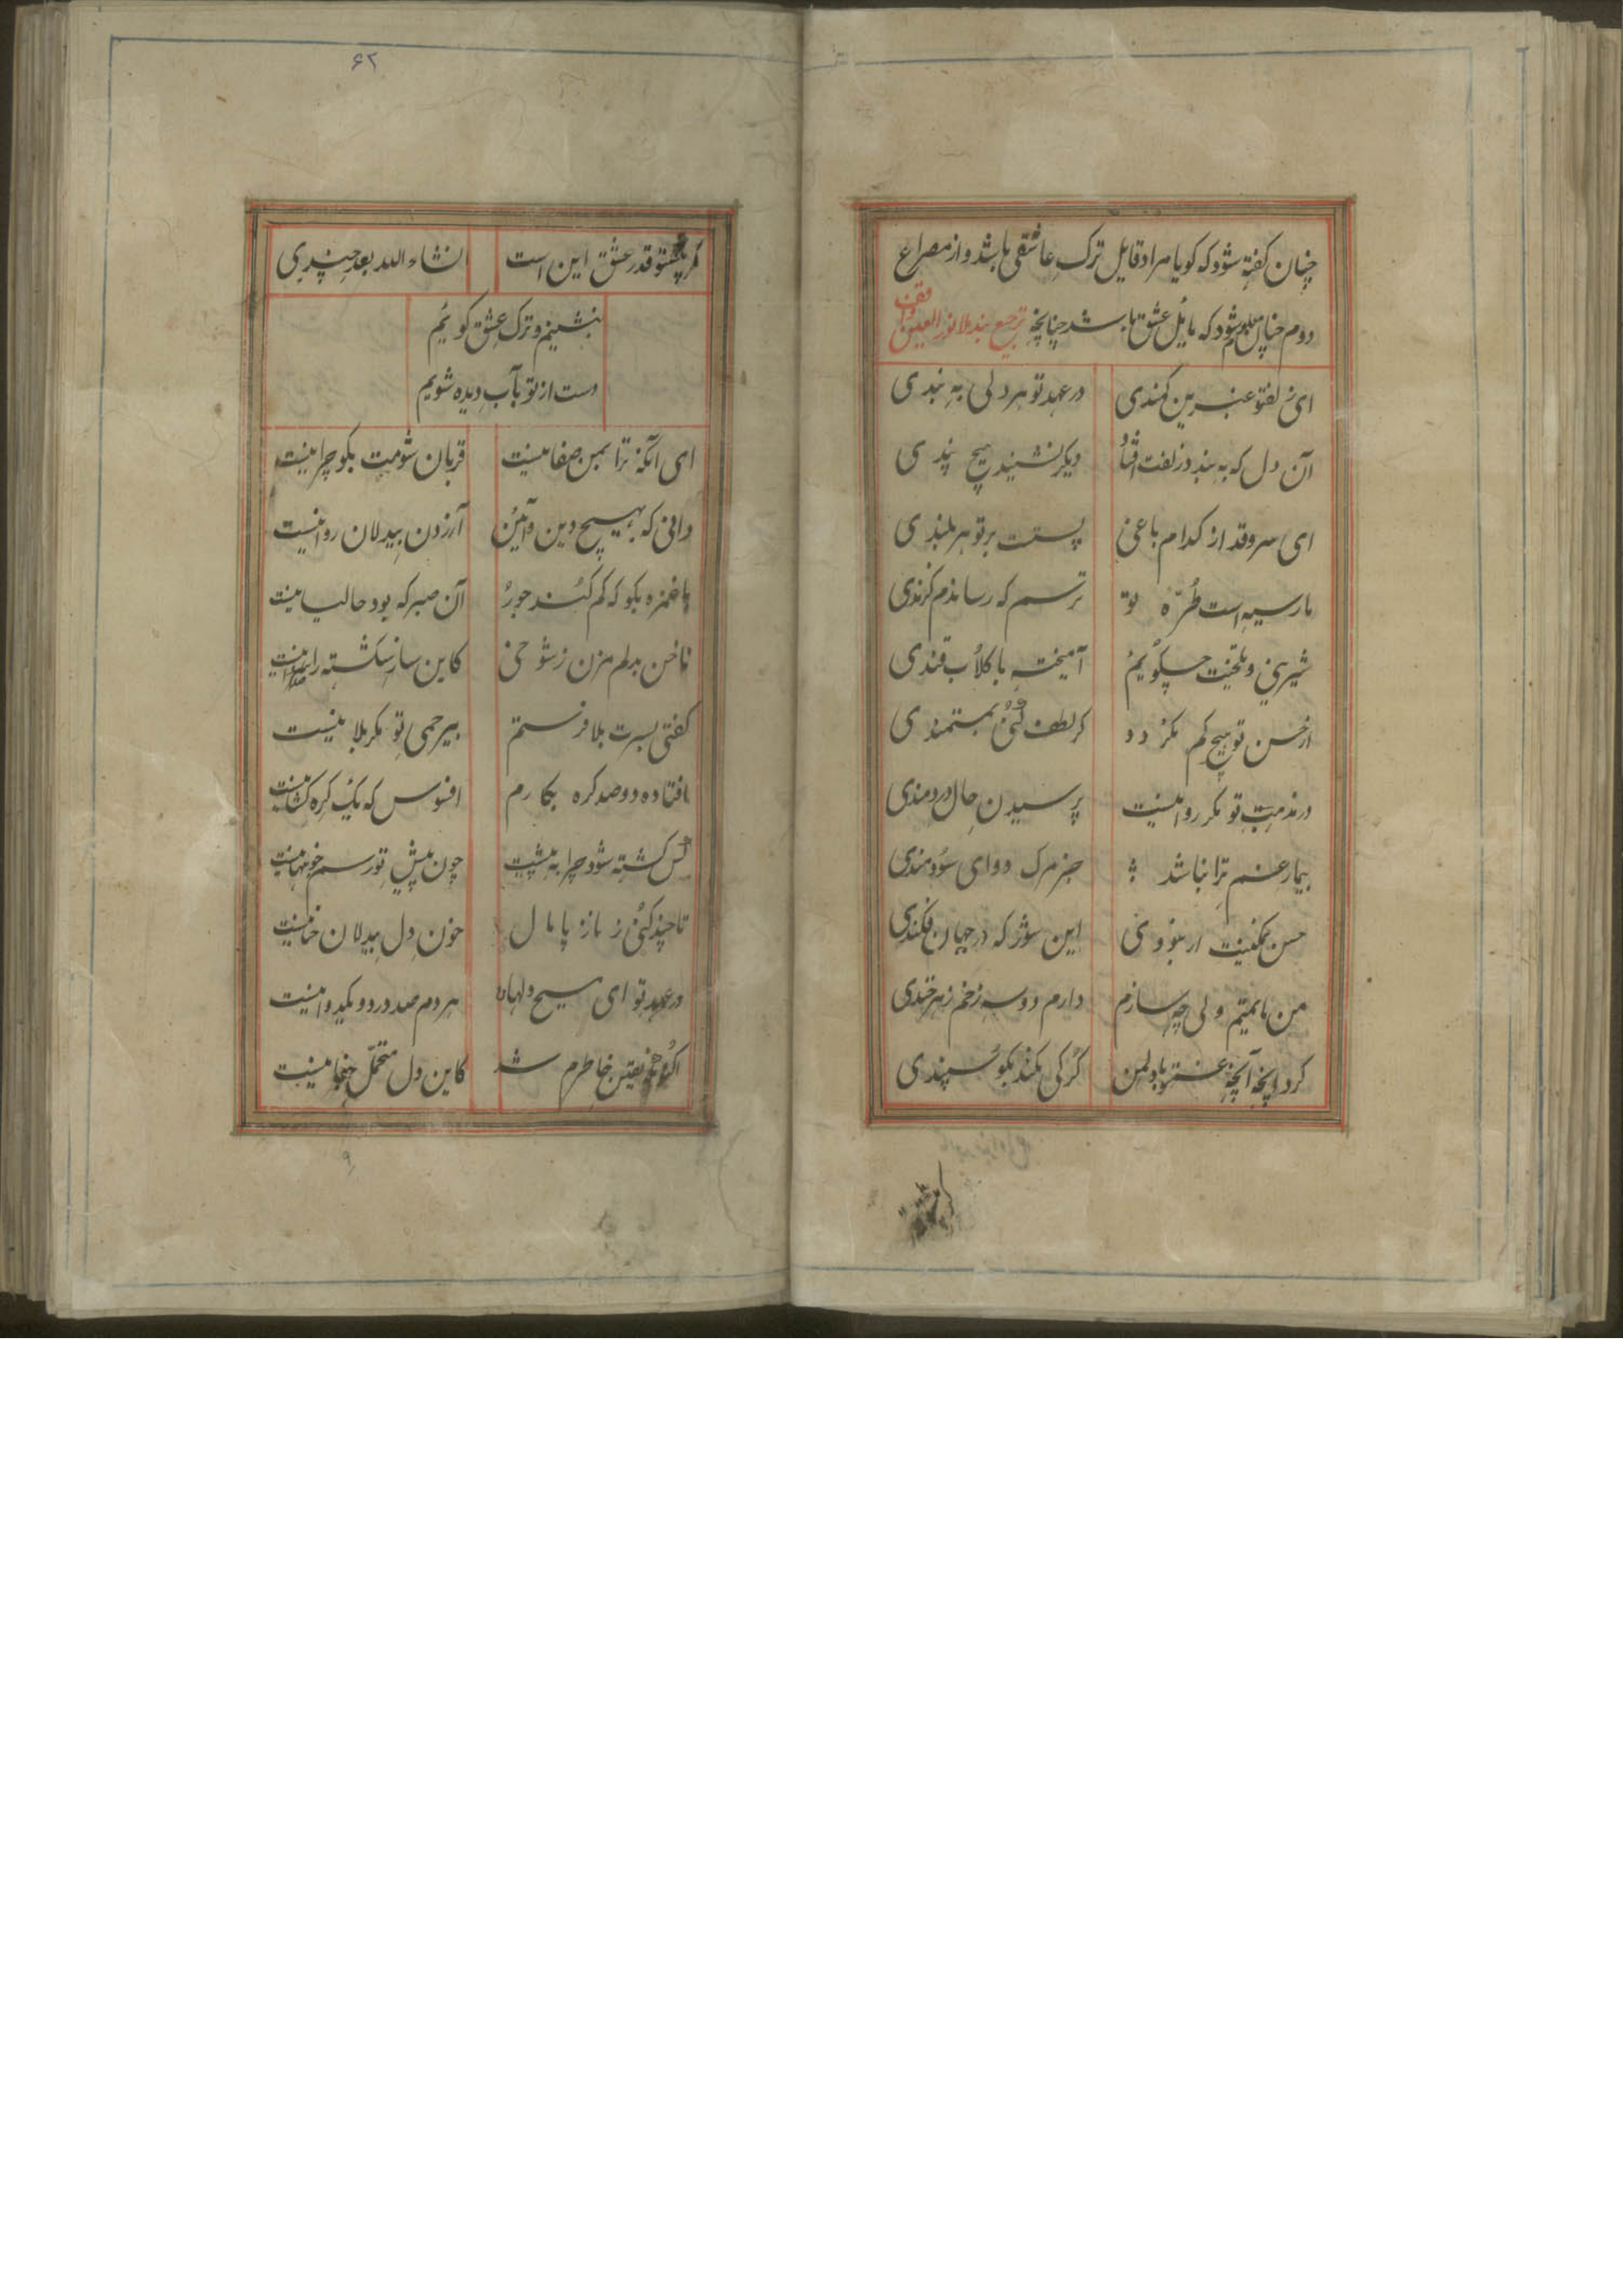 چنان کفته شود که کویا مراد قایل ترک عاشقی باشد و از مصراع
دوم چنان معلوم شود که مایل عشق باشد چنانچه ترجیع بند ملا نور العین واقف
ای زلف تو عنبرین کمندی در عهد تو هر دلی به بندی
آن دل که به بند زلفت افتاد دیکر نشنید هیچ پندی
ای سرو قد از کدام باغی پست بر تو هر بلندی
مار سیه است طره تو ترسم که رساندم کزندی
شیرینی و تلخیت چکویم آمیخته با کلاب قندی
از حسن تو هیچ کم نکردد کر لطف کنی بمستمندی
در مذهب تو مکر روا نیست پرسیدن حال دردمندی
بیمار غم ترا نباشد جز مرک دوای سودمندی
حسن نمکینت از فزونی این شور که در جهان فکندی
من مانمتیم ولی چه سازم دارم دو سه زخم زهرخندی
کرد آنچه غمزه با دل من کرکی نکند بکوسپندی
۶۲
کر پیش تو قدر عشق این است انشاء الله بعد چندی
بنشینم و ترک عشق کویم
دست از تو بآب دیده شویم
ای آنکه ترا بمن صفا نیست قربان شومت بکو چرا نیست
دانی که بهیچ دین و آئین آزردن بیدلان روا نیست
با غمزه بکو که کم کند جور آن صبر که بود حالیا نیست
ناخن بدلم مزن ز شوخی کاین ساز شکسته را صدا نیست
کفتی بسرت بلا فرستم بیرحمی تو مکر بلا نیست
افتاده دو صد کره بکارم افسوس که یک کره کشا نیست
کس کشته شود چرا به پیشت چون پیش تو رسم خونبها نیست
تا چند کنی ز ناز پامال خون دل بیدلان حنا نیست
در عهد تو ای مسیح دلها هر دم صد درد و یک دوا نیست
اکنون یقین خاطرم شد کاین دل متحمل جفا نیست